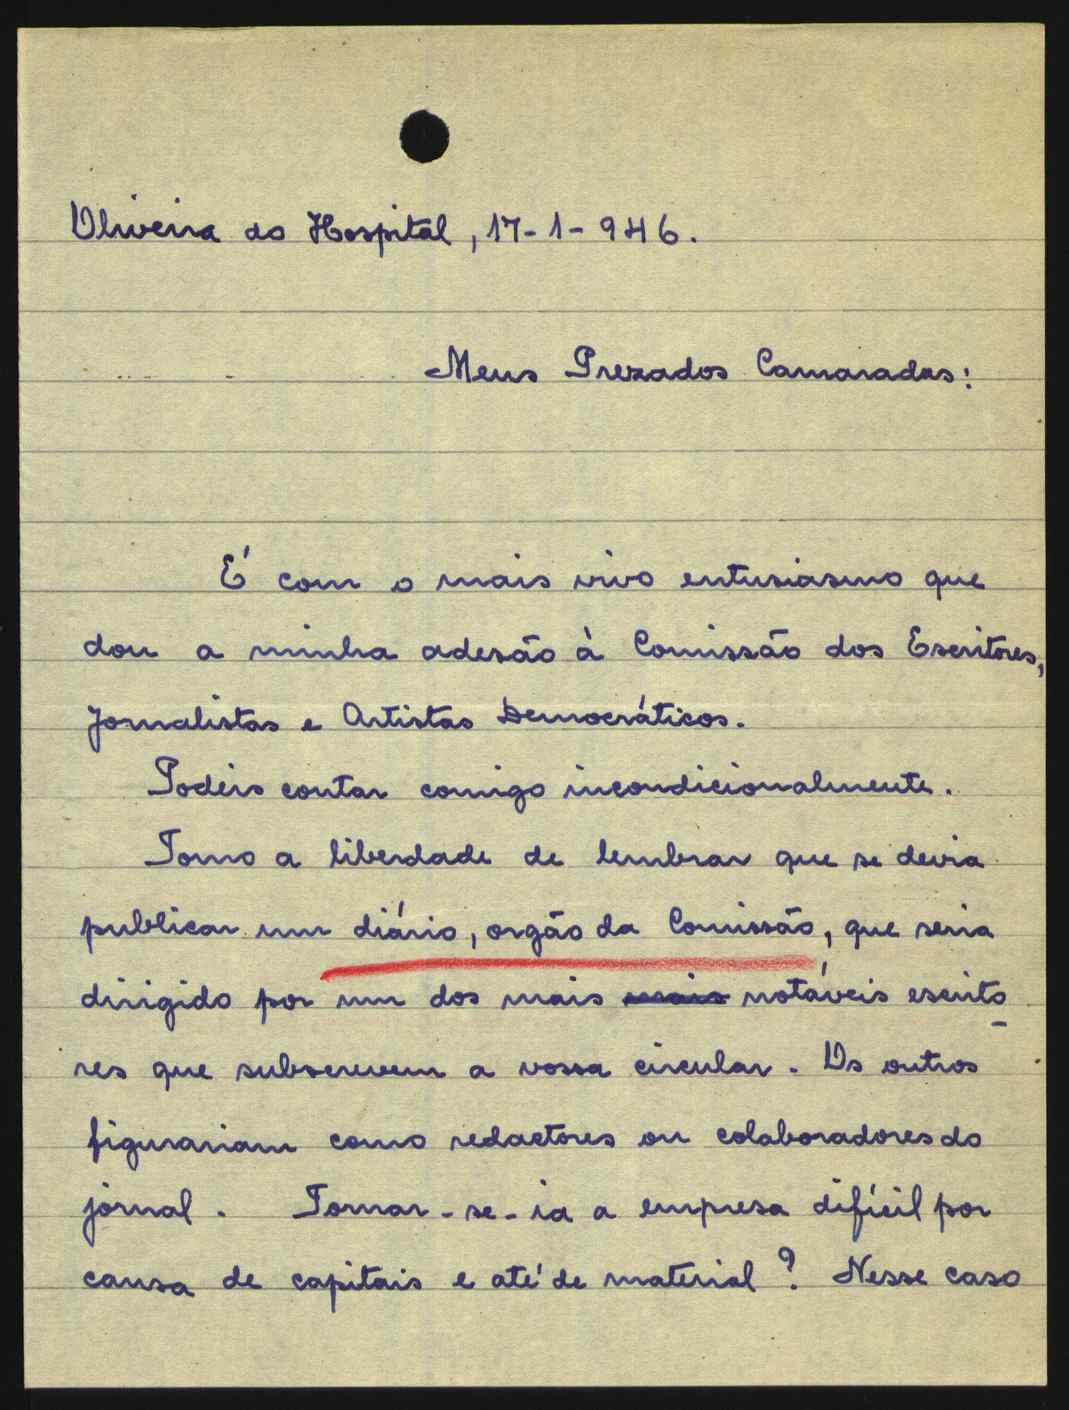 Oliveira do Hospital, 17-1-946.
Meus Prezados Camaradas:
É com o mais vivo entusiasmo que
dou a minha adesão à Comissão dos Escritores,
Jornalistas e Artistas Democráticos.
Podeis contar comigo incondicionalmente.
Tomo a liberdade de lembrar que se devia
publicar um diário, orgão da Comissão, que seria
dirigido por um dos mais mais notáveis escrito
res que subscrevem a vossa circular. Os outros
figurariam como redactores ou colaboradores do
jornal. Tornar-se-ia a empresa difícil por
causa de capitais e até de material? Nesse caso